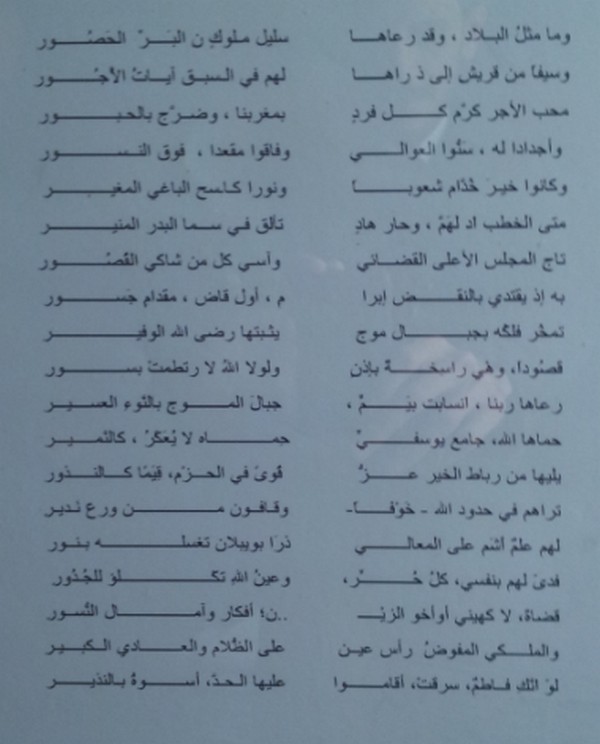 وما مثلُ البلاد ، وقد رعاهــا سليل ملوك ن البَـــرّ الحَصُــــور
وسيفاً من قريش إلى ذراهــا لهم في السبق آيــاتُ الأجُــور
محب الأجر كرّم كـــل فردٍ بمغربنا ، وضــرّج بالحبــــور
وأجدادا له ، سنُوا العوالـــي وفاقوا مقعدا ، فوق النســـور
وكانوا خيرَ خُدّام شعوبـــاً ونورا كـاسح الباغي المغيـــر
متى الخطب اد لهَمَّ ، وحار هادِ تـألق فــي سمـا البدر المنيـــر
تاج المجلس الأعلى القضــائي وآسي كل من شاكي القُصُـــور
به إذ يقتدي بالنقـــض إبرا م ، أول قاض ، مقدام جَســـور
تمخُر فلكُه بجبــــال موج يثبتها رضى الله الوفيـــــر
قصُودا، وهي راسخــةً بإذن ولولا اللهُ لا رتطمتْ بســـور
رعاها ربنا ، انسابت بيَــمٍّ ، جبالَ المـــوج بالنَّوءِ العسيـــر
حماها الله، جامع يوسفــيٍّ حمـــــاه لا يُعَكَّرُ ، كالنَّميـــر
يليها من رباط الخير عـــزُّ قُوىً في الحزْم، قِيَمًا كـالنـــذور
تراهم في حدود الله - خوْفــاً- وقافــون مــــن ورع نديـر
لهم علمٌ أشم على المعالــي ذرَا بويبلان تغسلـــــه بنــور
فدىً لهم بنفسي، كلُّ حُـــر، وعينُ اللهِ تكـــــلؤ للجُدُور
قضاة، لا كهيني أوأخو الزيْــ ..نِ؛ أفكار وآمــــال النُّسور
والملـكي المفوضُ رأس عين على الظُلام والعــادي الكبيــر
لوَ انكِ فـاطمٌ، سرقتْ، أقامــوا عليها الحدّ، أسـوةً بالنذيـــر